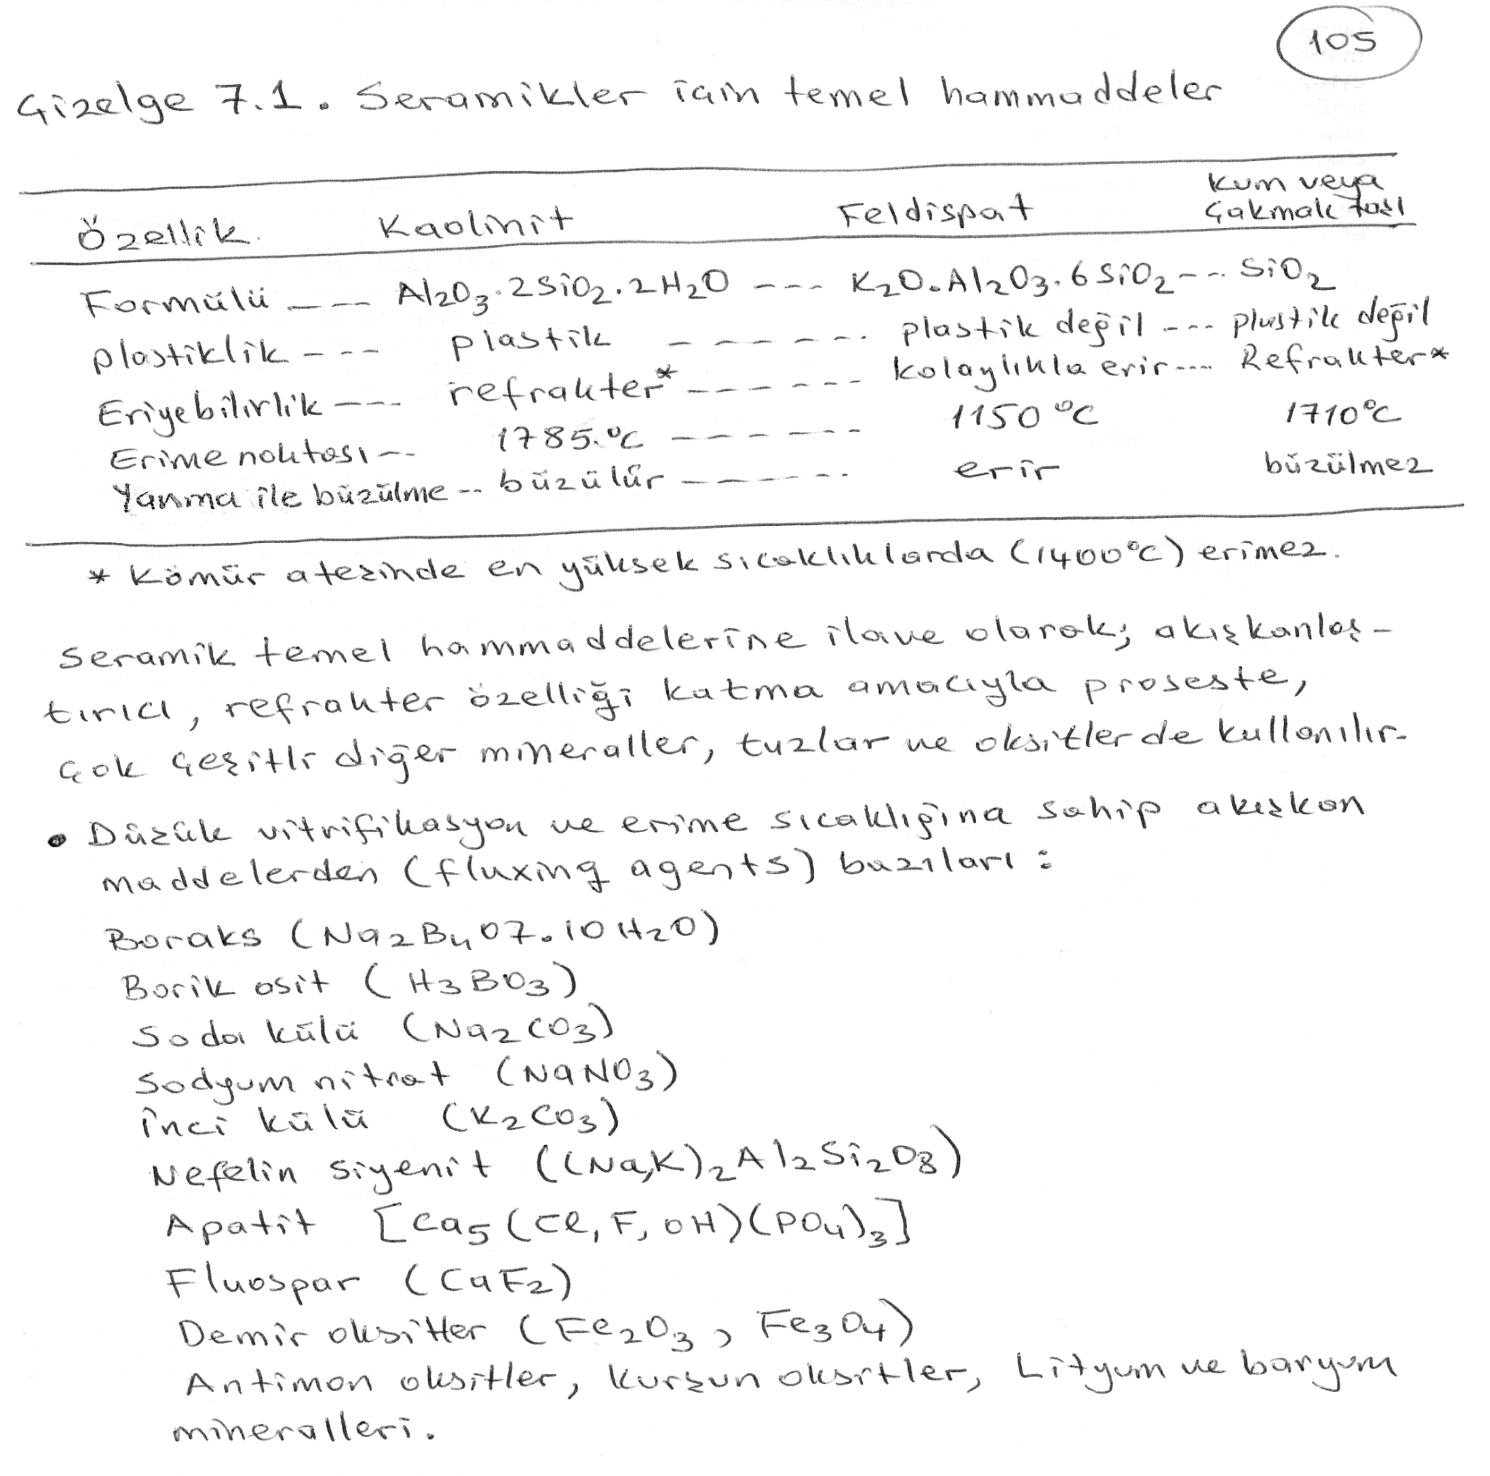 105
Çizelge 7.1. Seramikler için temel hammaddeler
Özellik Kaolinit Feldispat Kum veya Çakmak taşı
Formülü ___ Al2O3.2SiO2.2H2O --- K2O.Al2O3.6SiO2--- SiO2
plastiklik --- plastik ------ plastik değil --- plastik değil
Eriyebilirlik --- refrakter* ------ kolaylıkla erir--- Refrakter*
Erime noktası -- 1785.°C ------ 1150°C 1710°C
Yanma ile büzülme -- büzülür ------ erir büzülmez
* Kömür ateşinde en yüksek sıcaklıklarda (1400°C) erimez.
Seramik temel hammaddelerine ilave olarak; akışkanlaş-
tırıcı, refrakter özelliği katma amacıyla proseste,
çok çeşitli diğer mineraller, tuzlar ve oksitler de kullanılır.
• Düşük vitrifikasyon ve erime sıcaklığına sahip akışkan
maddelerden (fluxing agents) bazıları:
Boraks (Na2B4O7.10H2O)
Borik asit (H3BO3)
Soda külü (Na2CO3)
Sodyum nitrat (NaNO3)
İnci külü (K2CO3)
Nefelin siyenit ((Na,K)2Al2Si2O8)
Apatit [Ca5(Cl,F,OH)(PO4)3]
Fluospar (CaF2)
Demir oksitler (Fe2O3, Fe3O4)
Antimon oksitler, Kurşun oksitler, Lityum ve baryum
mineralleri.